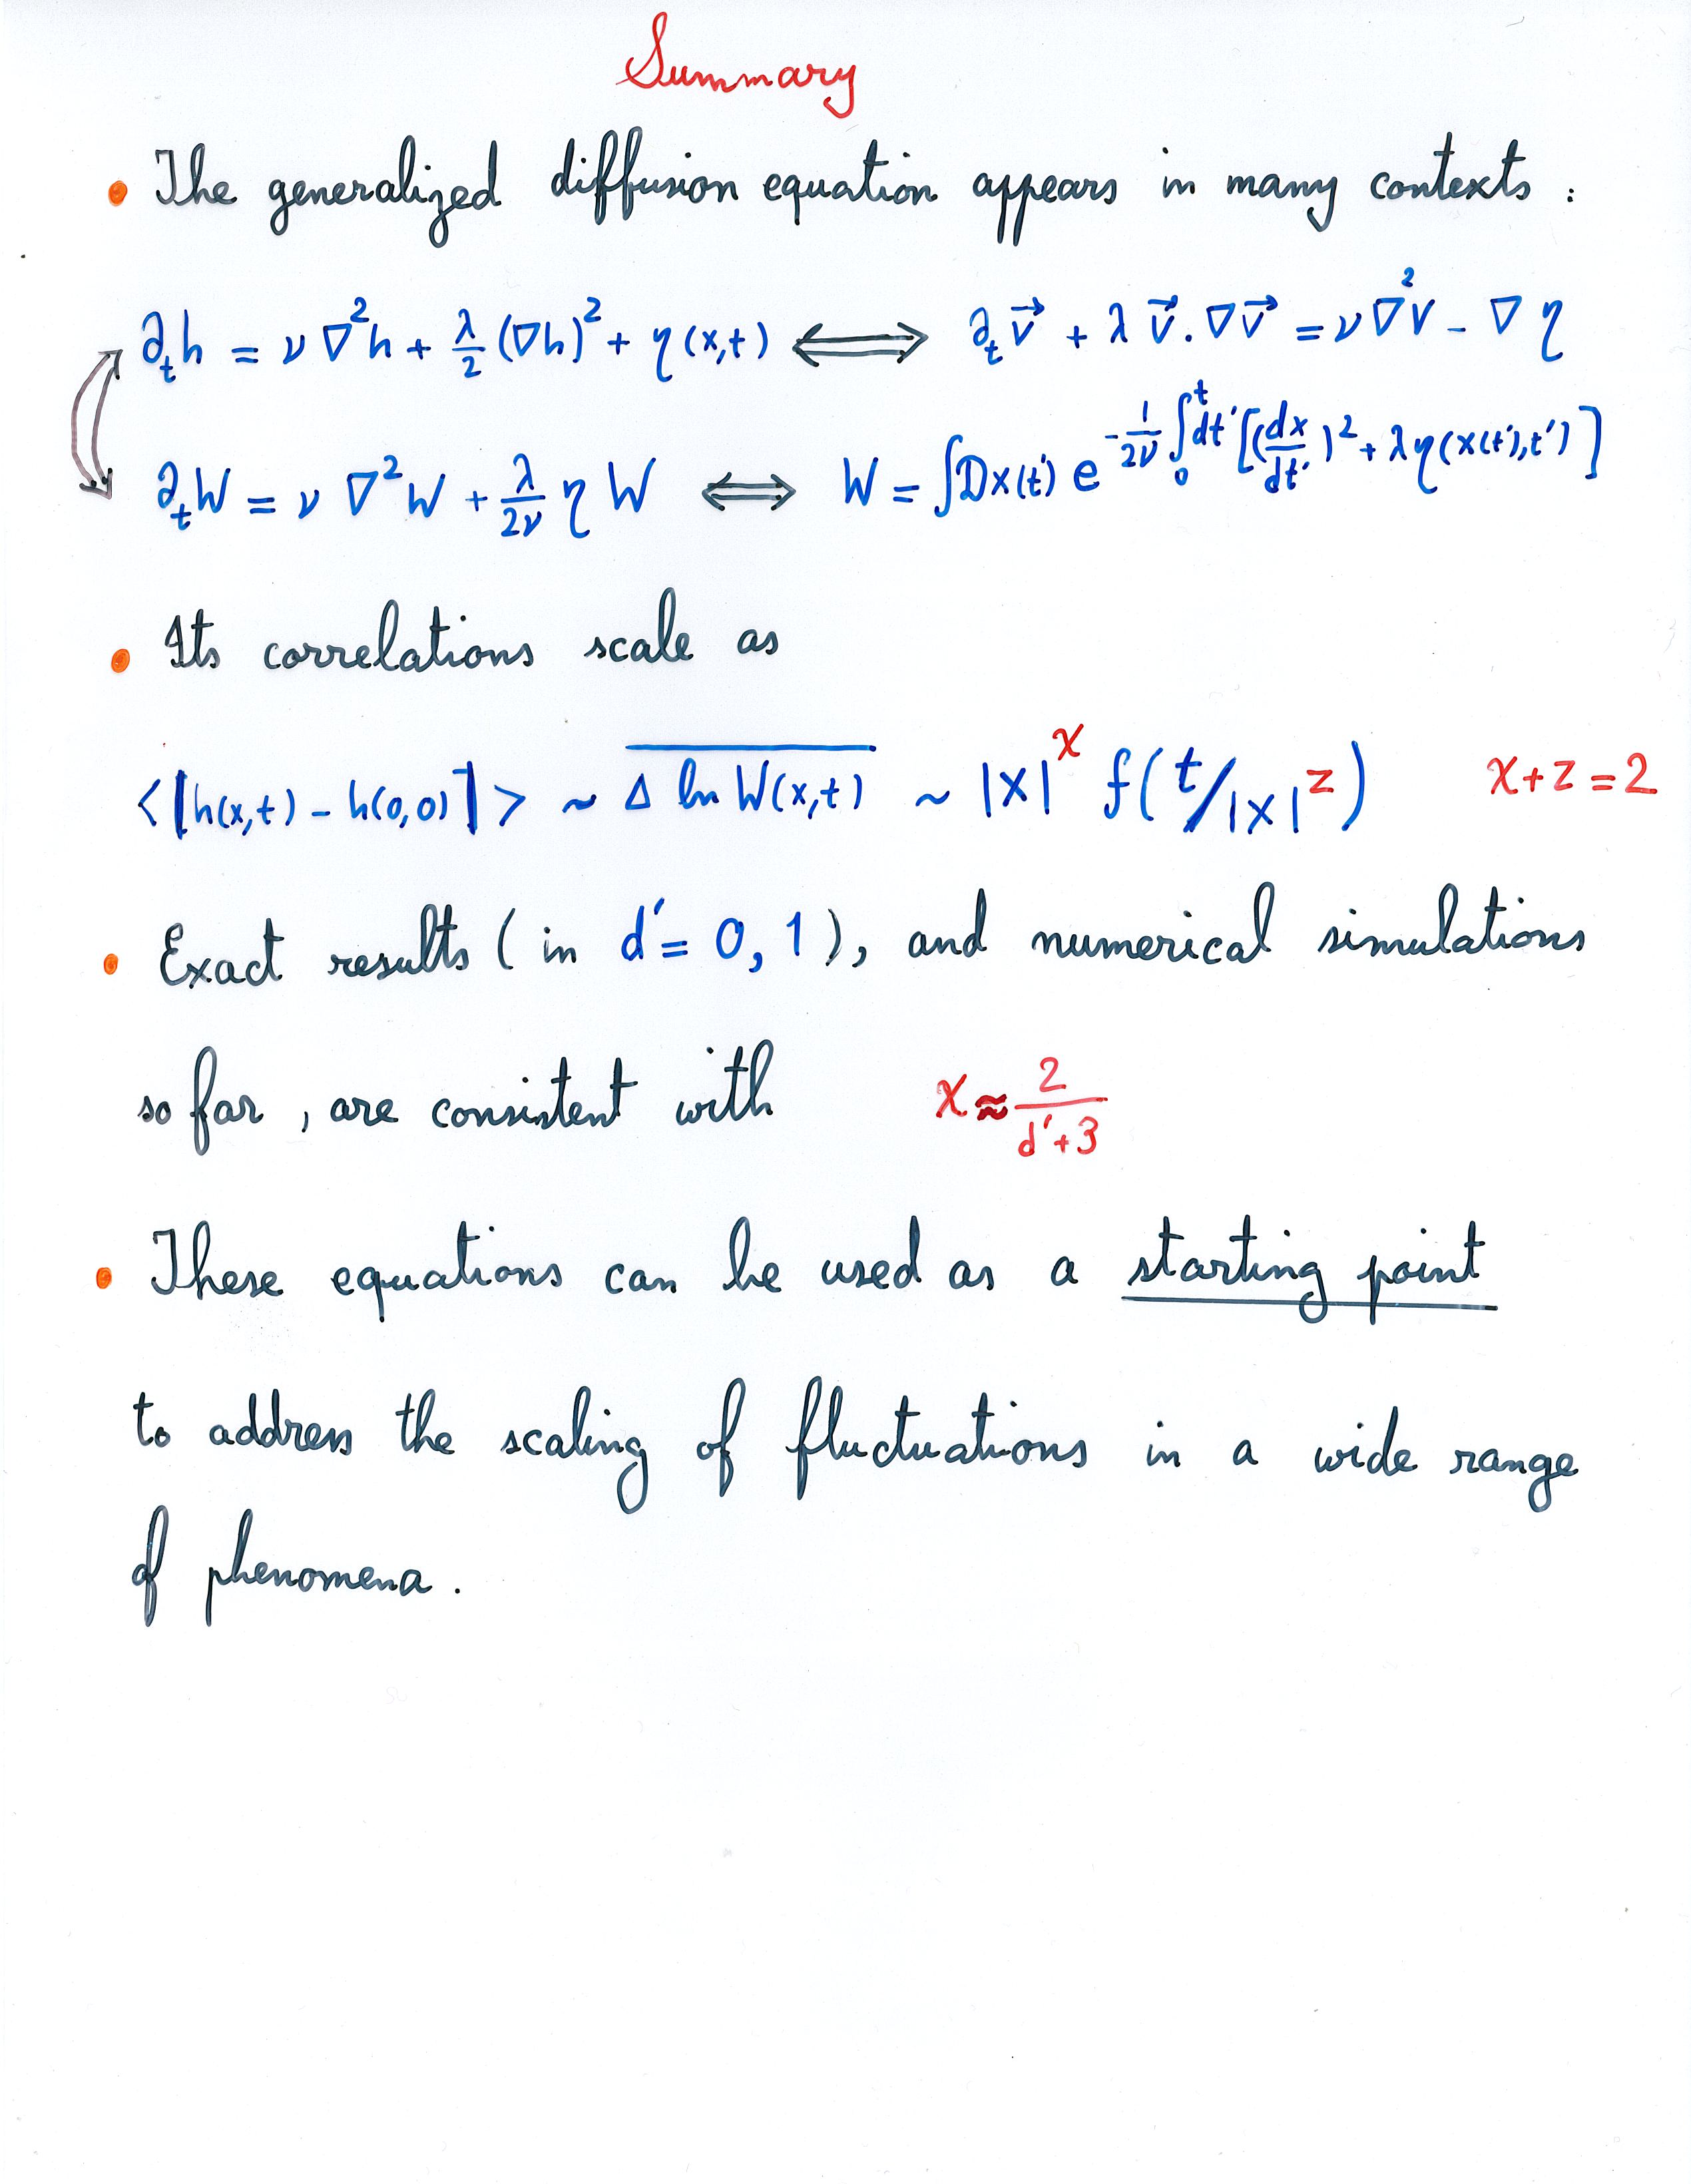 Summary
• The generalized diffusion equation appears in many contexts :
∂ₜh = ν ∇²h + λ/2 (∇h)² + η(x,t) ⟺ ∂ₜv⃗ + λ v⃗.∇v⃗ = ν∇²v - ∇η
∂ₜW = ν ∇²W + λ/2ν η W ⟺ W = ∫Dx(t') e^{-1/2ν ∫₀ᵗ dt' [(dx/dt')² + λη(x(t'),t')]}
• Its correlations scale as
<|h(x,t) - h(0,0)|> ~ \overline{Δ ln W(x,t)} ~ |x|^χ f(t/|x|^z) χ+z=2
• Exact results (in d'= 0, 1), and numerical simulations
so far, are consistent with χ ≈ 2/(d'+3)
• These equations can be used as a starting point
to address the scaling of fluctuations in a wide range
of phenomena.